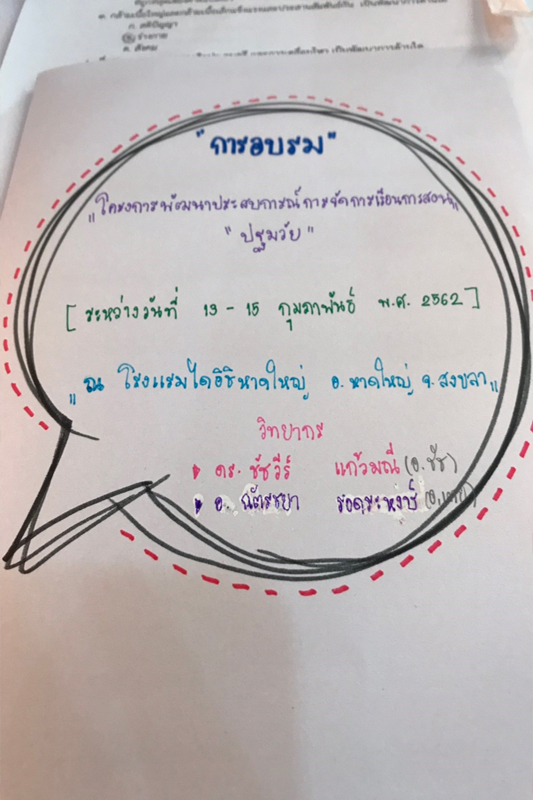 ก. สติปัญญา
ข. ร่างกาย
ค. สังคม
"การอบรม"
"โครงการพัฒนาประสบการณ์การจัดการเรียนการสอน"
"ปฐมวัย"
[ระหว่างวันที่ 13 - 15 กุมภาพันธ์ พ.ศ. 2562]
"ณ โรงแรมไดอิชิหาดใหญ่ อ.หาดใหญ่ จ.สงขลา"
วิทยากร
ดร. ชัชวีร์ แก้วมณี (อ.ชัช)
อ. ฉัตรชยา